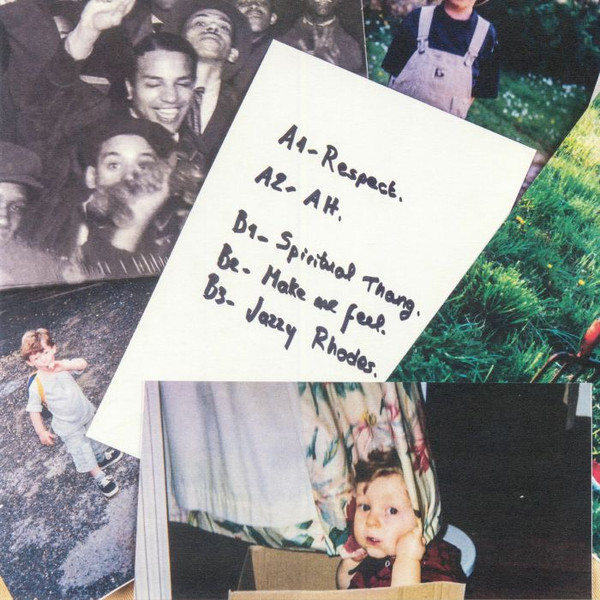 A1- Respect.
A2- AH.
B1- Spiritual Thang.
B2- Make me feel.
B3- Jazzy Rhodes.